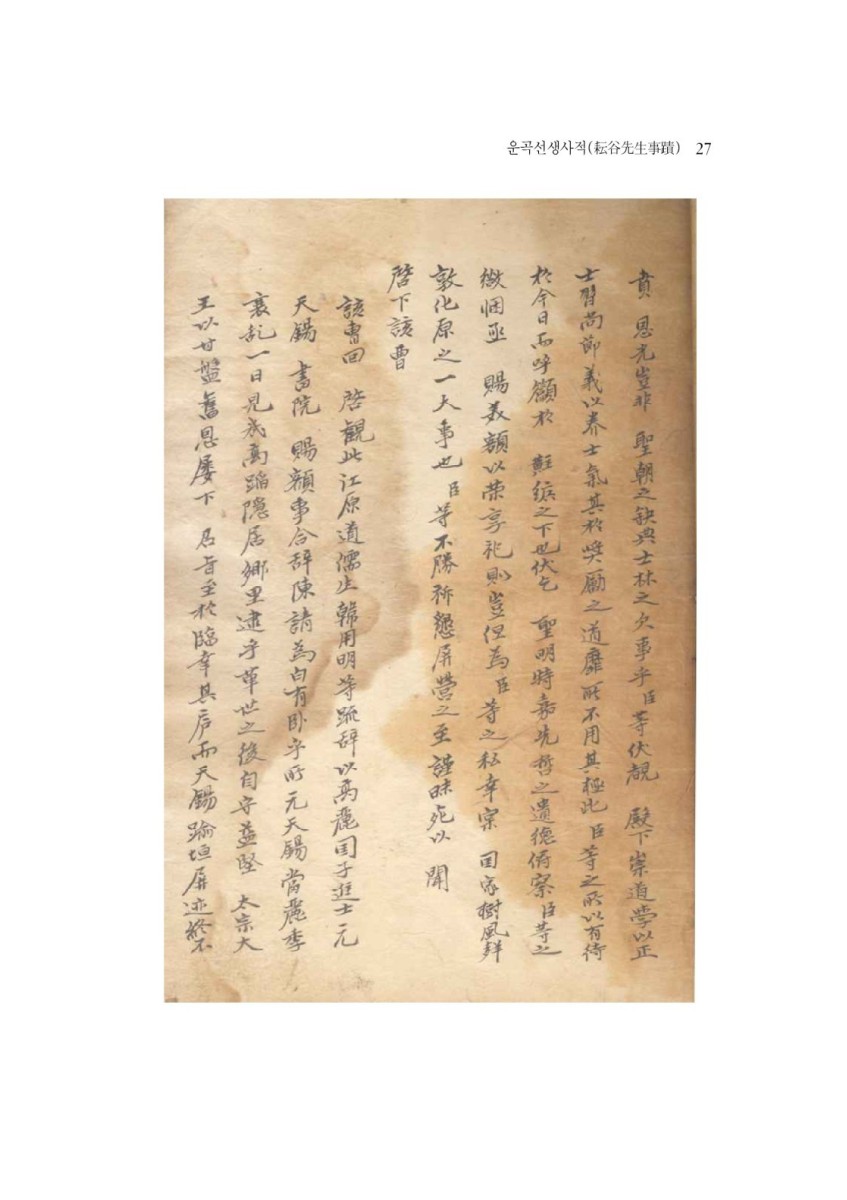 운곡선생사적(耘谷先生事蹟) 27
賁 恩尤豈非 聖朝之缺典士林之欠事乎臣等伏覩 殿下崇道學以正
士習尚節義以养士氣其於奬勵之道靡所不用其極此臣等之所以有待
於今日而呼籲於 黈纊之下也伏乞 聖明特彔先哲之遺德俯察臣等之
微悃亟 賜美額以荣享祀則豈但為臣等之私幸宗 囯家樹風聲
敦化原之一大事也臣等不勝祈懇屏營之至謹昧死以 聞
啓下該曹
該曹回 啓觀此江原道儒生韓用明等䟽辞以高麗囯子進士元
天錫 書院 賜額事合辞陳請為白有卧乎所元天錫當麗季
衰乱一日見㡬高蹈隱居鄉里逮乎革世之後自守益堅 太宗大
王以甘盤舊恩屡下 召旨至於臨幸其庐而天錫踰垣屏迹終不